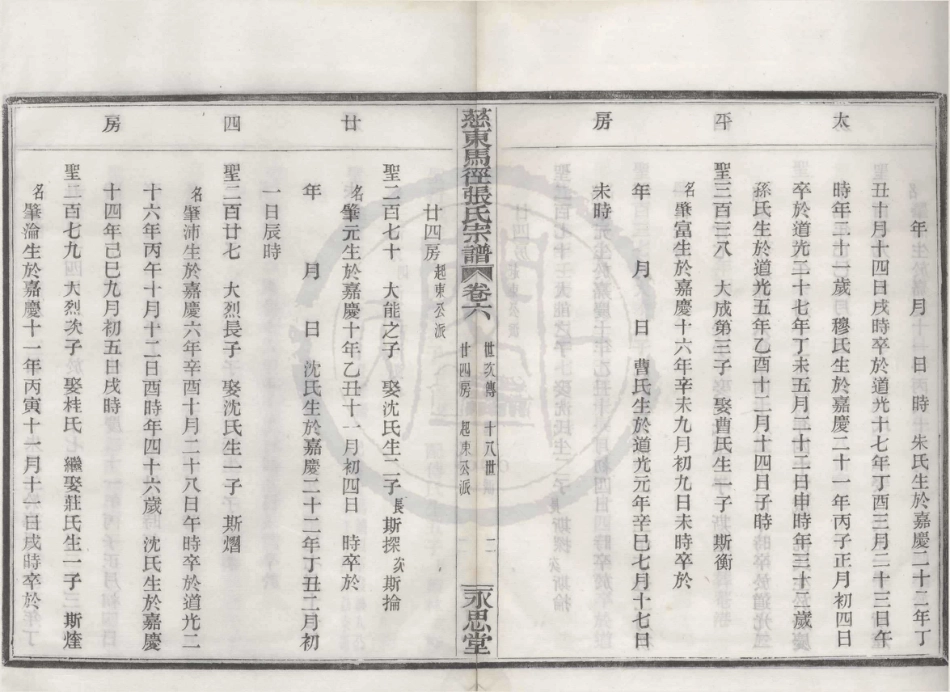 太平房
年　月　日　時　朱氏生於嘉慶二十二年丁
丑十月十四日戌時卒於道光十七年丁酉三月二十三日午
時年二十一歲　穆氏生於嘉慶二十一年丙子正月初四日
卒於道光二十七年丁未五月二十二日申時年三十二歲
孫氏生於道光五年乙酉十二月十四日子時
聖三百三八　大成第三子　娶曹氏生一子　斯衡
名肇富生於嘉慶十六年辛未九月初九日未時卒於
年　月　日　曹氏生於道光元年辛巳七月十七日
未時
慈東馬徑張氏宗譜　卷六　世次傳　十八世　廿四房　起東公派　二　永思堂
廿四房
廿四房起東公派
聖二百七十　大能之子　娶沈氏生二子長斯探次斯掄
名肇元生於嘉慶十年乙丑十一月初四日　時卒於
年　月　日　沈氏生於嘉慶二十二年丁丑二月初
一日辰時
聖二百廿七　大烈長子　娶沈氏生一子　斯熠
名肇沛生於嘉慶六年辛酉十月二十八日午時卒於道光二
十六年丙午十月十二日酉時年四十六歲　沈氏生於嘉慶
十四年己巳九月初五日戌時
聖二百七九　大烈次子　娶桂氏　繼娶莊氏生一子　斯煃
名肇淪生於嘉慶十一年丙寅十二月十一日戌時卒於